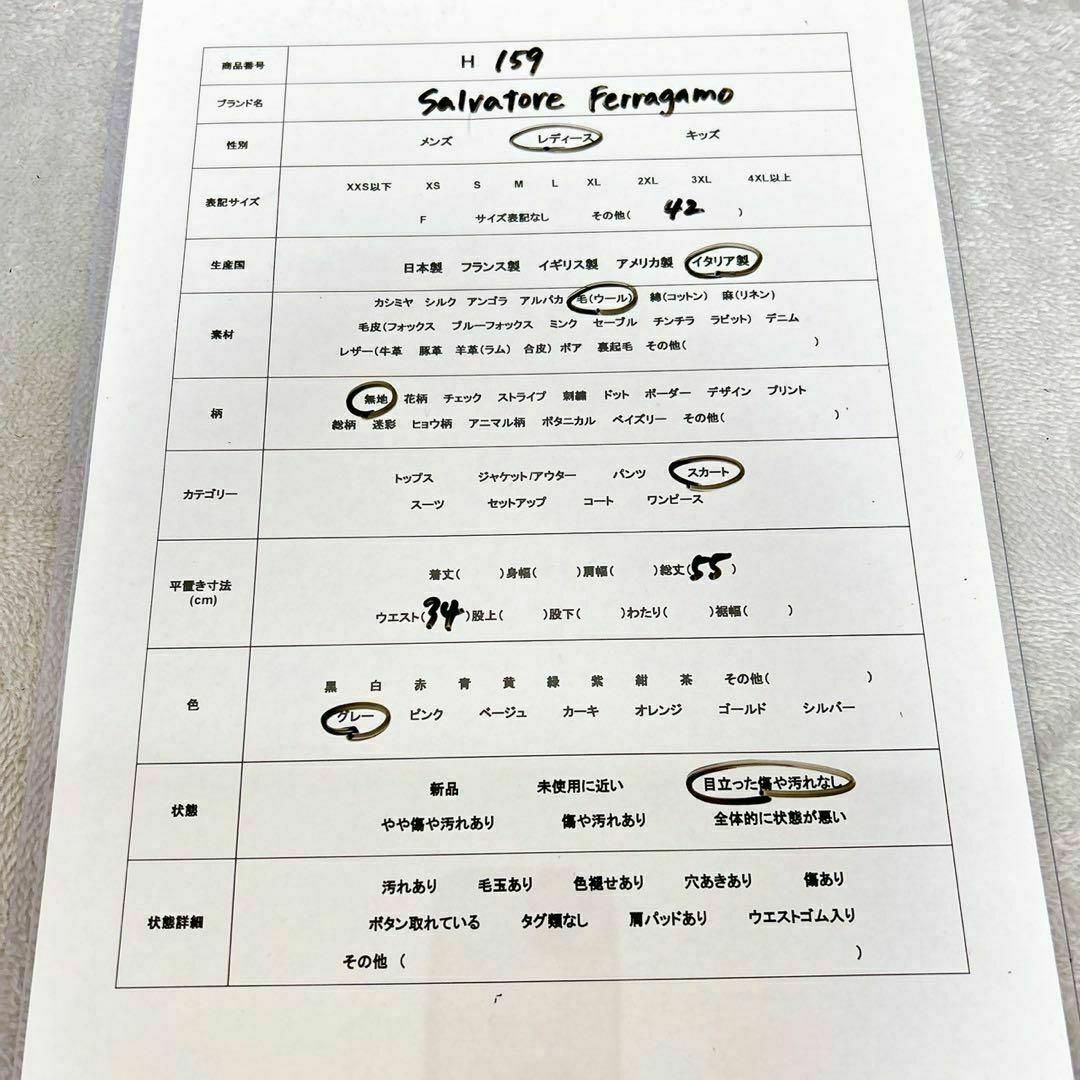 商品番号 H 159
ブランド名 Salvatore Ferragamo
性別 メンズ レディース キッズ
表記サイズ XXS以下 XS S M L XL 2XL 3XL 4XL以上
F サイズ表記なし その他( 42 )
生産国 日本製 フランス製 イギリス製 アメリカ製 イタリア製
素材 カシミヤ シルク アンゴラ アルパカ 毛(ウール) 綿(コットン) 麻(リネン)
毛皮(フォックス ブルーフォックス ミンク セーブル チンチラ ラビット) デニム
レザー(牛革 豚革 羊革(ラム) 合皮) ボア 裏起毛 その他( )
柄 無地 花柄 チェック ストライプ 刺繍 ドット ボーダー デザイン プリント
総柄 迷彩 ヒョウ柄 アニマル柄 ボタニカル ペイズリー その他( )
カテゴリー トップス ジャケット/アウター パンツ スカート
スーツ セットアップ コート ワンピース
平置き寸法 (cm) 着丈( )身幅( )肩幅( )総丈( 55 )
ウエスト( 34 )股上( )股下( )わたり( )裾幅( )
色 黒 白 赤 青 黄 緑 紫 紺 茶 その他( )
グレー ピンク ベージュ カーキ オレンジ ゴールド シルバー
状態 新品 未使用に近い 目立った傷や汚れなし
やや傷や汚れあり 傷や汚れあり 全体的に状態が悪い
状態詳細 汚れあり 毛玉あり 色褪せあり 穴あきあり 傷あり
ボタン取れている タグ類なし 肩パッドあり ウエストゴム入り
その他 ( )